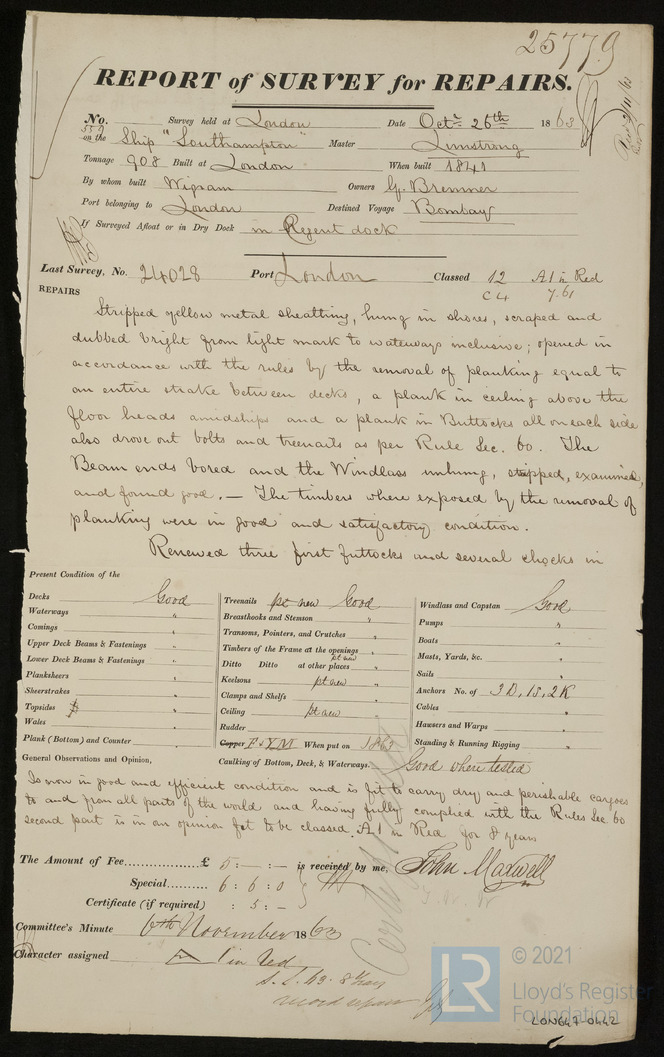 25779
REPORT of SURVEY for REPAIRS.
No. 559 Survey held at London Date Octr. 26th 1863
on the Ship "Southampton" Master
Tonnage 908 Built at London When built 1841
By whom built Wigram Owners G. Bremner
Port belonging to London Destined Voyage Bombay
If Surveyed Afloat or in Dry Dock in Regent dock
Last Survey, No. 24028 Port London Classed 12 A1 in Red
C4 7.61
REPAIRS
Stripped yellow metal sheathing, hung in shores, scraped and
dubbed bright from light mark to waterways inclusive; opened in
accordance with the rules by the removal of planking equal to
an entire strake between decks, a plank in ceiling above the
floor heads amidships and a plank in Buttocks all on each side
also drove out bolts and treenails as per Rule Sec. 60. The
Beam ends bored and the Windlass unhung, stripped, examined,
and found good. — The timbers where exposed by the removal of
planking were in good and satisfactory condition.
Renewed three first futtocks and several chocks in
Present Condition of the
Decks Good
Waterways "
Comings "
Upper Deck Beams & Fastenings "
Lower Deck Beams & Fastenings "
Planksheers "
Sheerstrakes "
Topsides "
Wales "
Plank (Bottom) and Counter "
Treenails pt new Good
Breasthooks and Stemson "
Transoms, Pointers, and Crutches "
Timbers of the Frame at the openings "
Ditto Ditto at other places pt new "
Keelsons pt new "
Clamps and Shelfs "
Ceiling pt new "
Rudder "
Copper F & YM When put on 1863
Windlass and Capstan Good
Pumps "
Boats "
Masts, Yards, &c. "
Sails "
Anchors No. of 3B, 1S, 2K
Cables "
Hawsers and Warps "
Standing & Running Rigging "
General Observations and Opinion, Caulking of Bottom, Deck, & Waterways. Good where tested
Is now in good and efficient condition and is fit to carry dry and perishable cargoes
to and from all parts of the world and having fully complied with the Rules Sec. 60
second part is in our opinion fit to be classed A1 in Red for 8 years
The Amount of Fee £ 5 : — : — is received by me, John Maxwell
Special 6 : 6 : 0
Certificate (if required) : 5 : —
Committee's Minute 6th November 1863
Character assigned A 1 in Red
8 Years
© 2021
LR Lloyd's Register
Foundation
LON647-0442